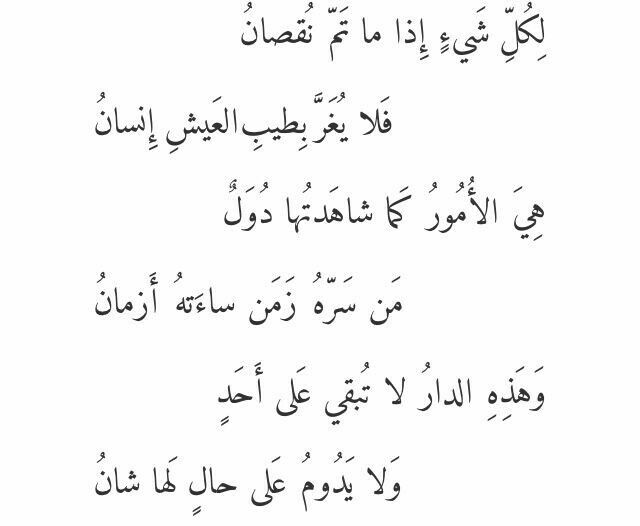 لِكُلِّ شَيءٍ إِذا ما تَمّ نُقصانُ
فَلا يُغَرَّ بِطيبِ العَيشِ إِنسانُ
هِيَ الأُمُورُ كَما شاهَدتُها دُوَلٌ
مَن سَرّهُ زَمَن ساءَتهُ أَزمانُ
وَهَذِهِ الدارُ لا تُبقي عَلى أَحَدٍ
وَلا يَدُومُ عَلى حالٍ لَها شانُ